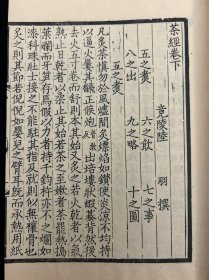 茶經卷下
竟陵陸 羽 撰
五之煑 六之飲 七之事
八之出 九之略 十之圖
五之煑
凡炙茶慎勿於風燼間炙熛焰如鑽使炎涼不均持
以逼火屢其翻正候炮出培塿狀蝦蟇背然後
去火五寸卷而舒則本其始又炙之若火乾者以氣
熟止日乾者以柔止其始若茶之至嫩者茶罷熱搗
葉爛而牙笋存焉假以力者持千鈞杵亦不之爛如
漆科珠壯士接之不能駐其指及就則似無穰骨也
炙之則其節若倪倪如嬰兒之臂耳既而承熱用紙